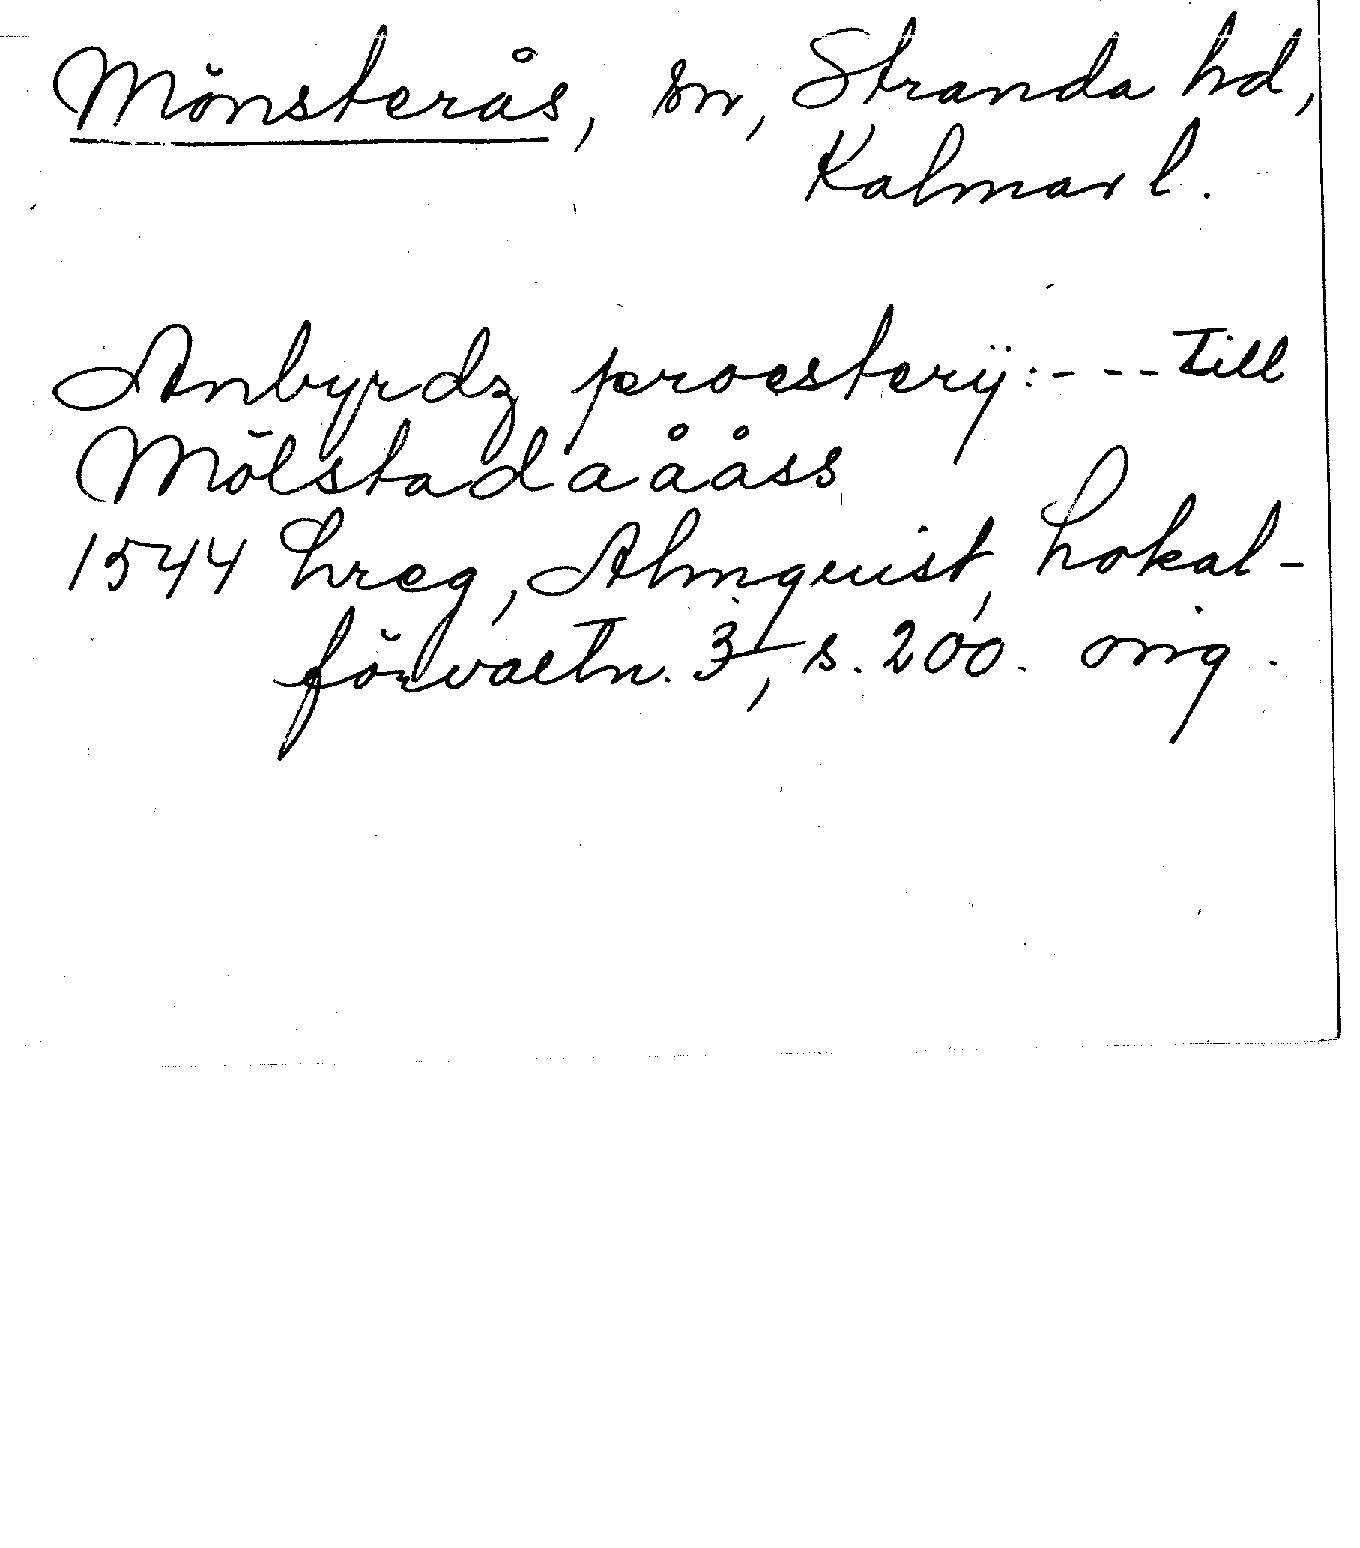 Mönsterås, sn, Stranda hd,
Kalmar l.
Anbyrdz proesterij:--- till
Mölstadaååss
1544 hreg, Almquist, Lokal-
förvaltn. 3, s. 200. orig.